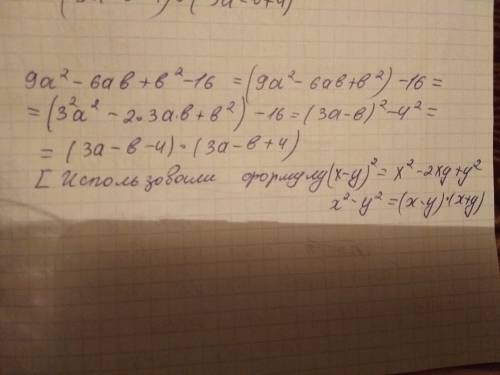 9a² - 6ab + b² - 16 = (9a² - 6ab + b²) - 16 =
= (3²a² - 2·3a·b + b²) - 16 = (3a - b)² - 4² =
= (3a - b - 4) · (3a - b + 4)
[ Использовали формулу (x-y)² = x² - 2xy + y²
x² - y² = (x-y)·(x+y)